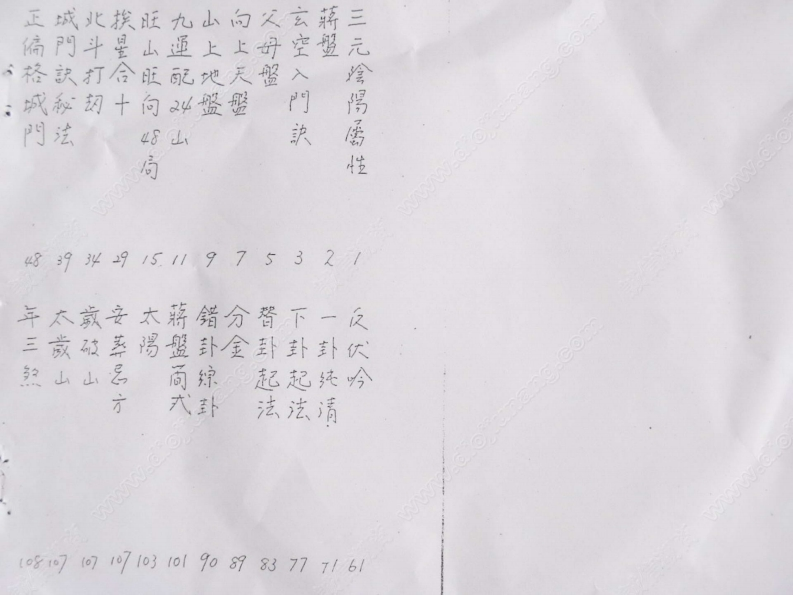 三元陰陽屬性 1
蔣盤 2
玄空入門訣 3
父母盤 5
向上天盤 7
山上地盤 9
九運配24山 11
旺山旺向48局 15
挨星合十 29
北斗打劫 34
城門訣秘法 39
正偏格城門 48
反伏吟 61
一卦純清 71
下卦起法 77
替卦起法 83
分金 89
錯卦綜卦 90
蔣盤簡式 101
太陽 103
安葬忌方 107
歲破山 107
太歲山 107
年三煞 108